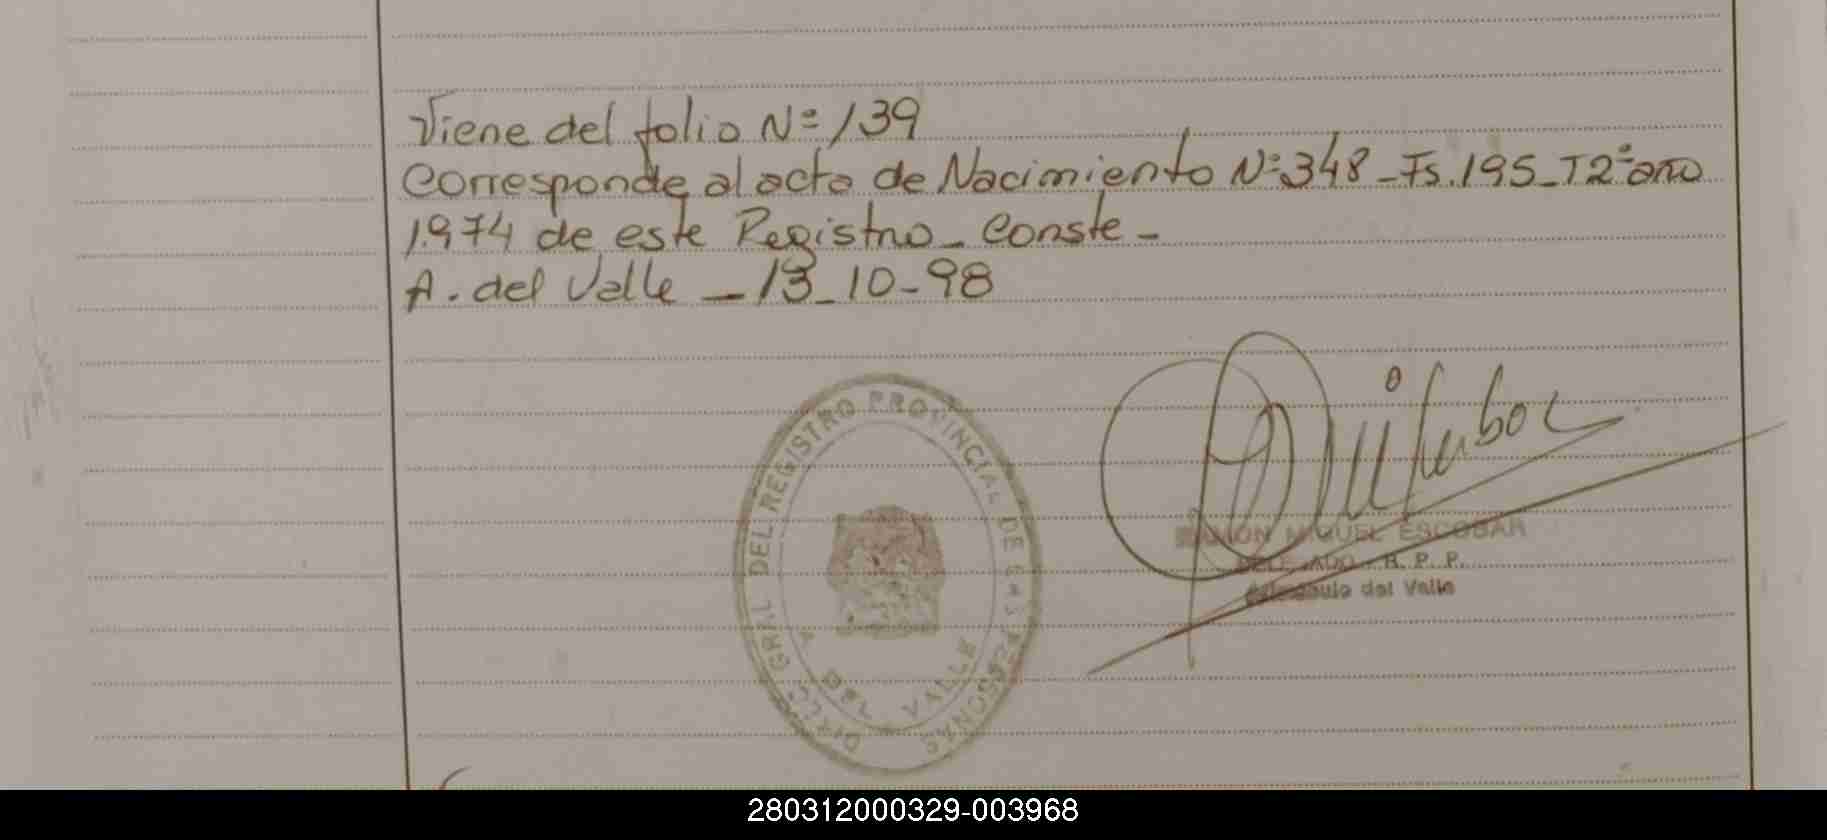 Viene del folio Nº 139
Corresponde al acta de Nacimiento Nº 348 - Fs. 195 - T 2º año
1.974 de este Registro - Conste -
A. del Valle - 13 - 10 - 98
DIREC. GRAL DEL REGISTRO PROVINCIAL DE LAS PERSONAS
A. DEL VALLE
RAMON MIGUEL ESCOBAR
DELEGADO R. P. P.
del Valle
280312000329-003968